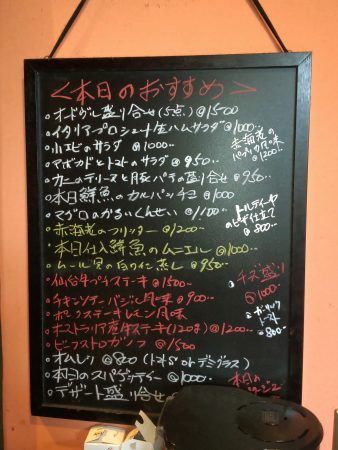 ＜本日のおすすめ＞
○オードヴル盛り合せ(5点)@1500
○イタリアプロシュート生ハムサラダ@1000-
○小エビのサラダ @1000-
○アボカドとトマトのサラダ @950-
○カニのテリーヌと豚パテの盛り合せ @950-
○本日鮮魚のカルパッチョ @1000
○マグロのかるいくんせい @1100-
○赤海老のフリッター @1200
○本日仕入鮮魚のムニエル @1000-
○ムール貝の白ワイン蒸し @950-
○仙台牛プチステーキ @1500
○チキンソテーバジル風味 @900-
○ポークステーキレモン風味
○オーストラリア産牛ステーキ(120g)@1200-
○ビーフストロガノフ @1500
○オムレツ @800 (トマトS or デミグラス)
○本日のスパゲッティー @1000-
○デザート盛り合せ
赤海老の
パプリカ風味
@1200-
トルティーヤ
のピザ仕立て
@800-
○チーズ盛り
@1000-
○ガーリック
トースト
@800-
本日の